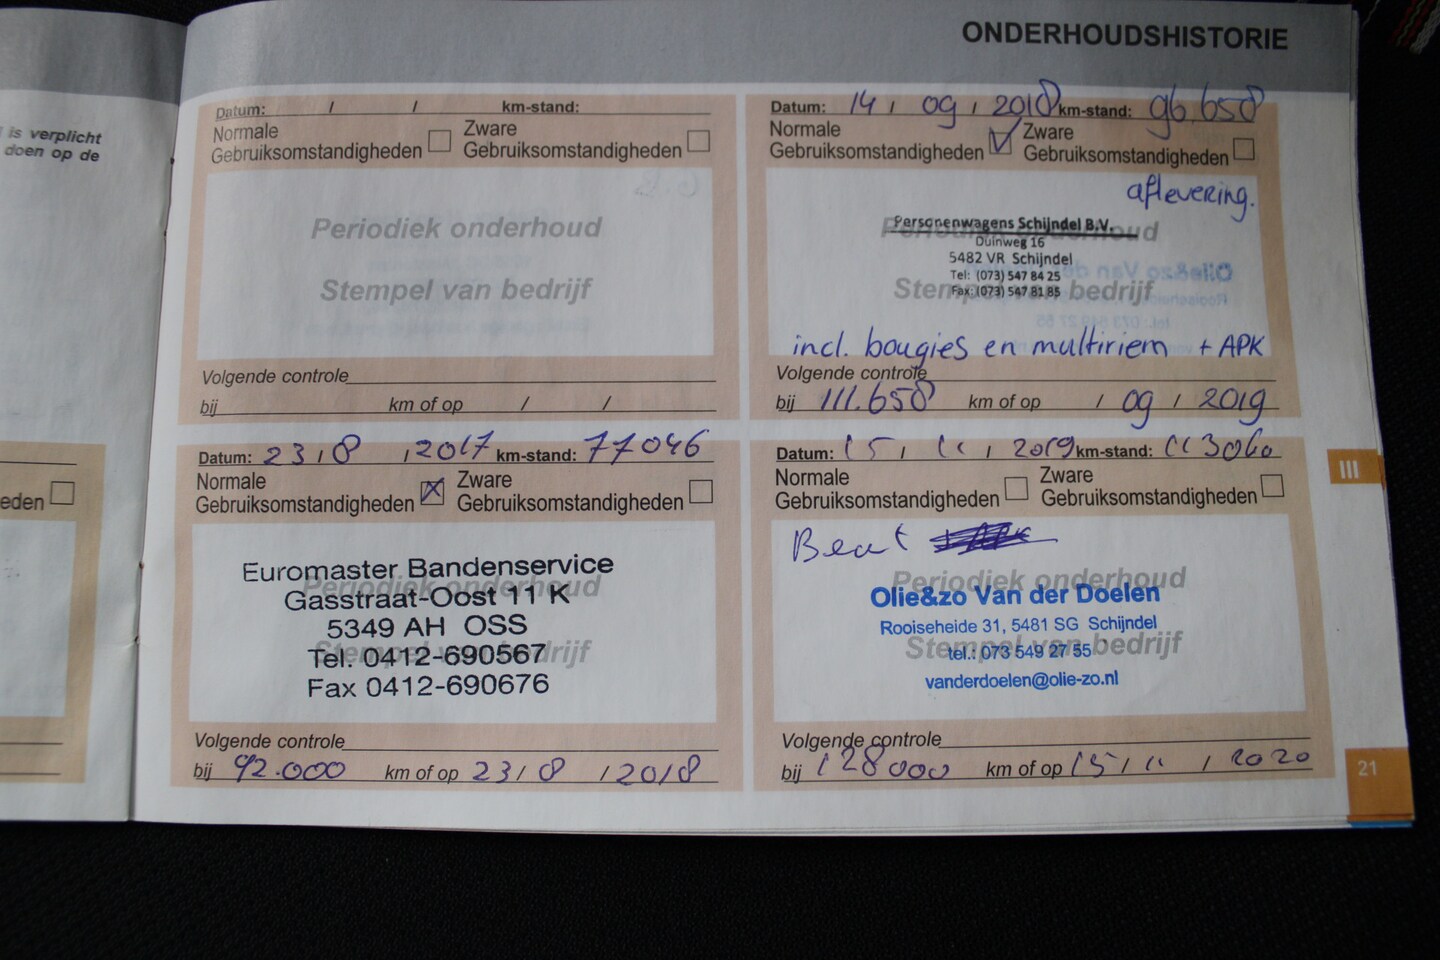 ONDERHOUDSHISTORIE
is verplicht
doen op de
eden
Datum: / / km-stand:
Normale Zware
Gebruiksomstandigheden Gebruiksomstandigheden
Periodiek onderhoud
Stempel van bedrijf
Volgende controle
bij km of op / /
Datum: 14 / 09 / 2018 km-stand: 96.658
Normale Zware
Gebruiksomstandigheden Gebruiksomstandigheden
aflevering.
Periodiek onderhoud
Personenwagens Schijndel B.V.
Duinweg 16
5482 VR Schijndel
Tel: (073) 547 84 25
Stempel van bedrijf
Fax: (073) 547 81 85
incl. bougies en multiriem + APK
Volgende controle
bij 111.658 km of op / 09 / 2019
Datum: 23 / 8 / 2017 km-stand: 77046
Normale Zware
Gebruiksomstandigheden Gebruiksomstandigheden
Euromaster Bandenservice
Periodiek onderhoud
Gasstraat-Oost 11 K
5349 AH OSS
Stempel van bedrijf
Tel. 0412-690567
Fax 0412-690676
Volgende controle
bij 92.000 km of op 23 / 8 / 2018
Datum: 15 / 11 / 2019 km-stand: 113060
Normale Zware
Gebruiksomstandigheden Gebruiksomstandigheden
Beurt
Periodiek onderhoud
Olie&zo Van der Doelen
Rooiseheide 31, 5481 SG Schijndel
Stempel van bedrijf
tel.: 073 549 27 55
vanderdoelen@olie-zo.nl
Volgende controle
bij 128000 km of op 15 / 11 / 2020
III
21